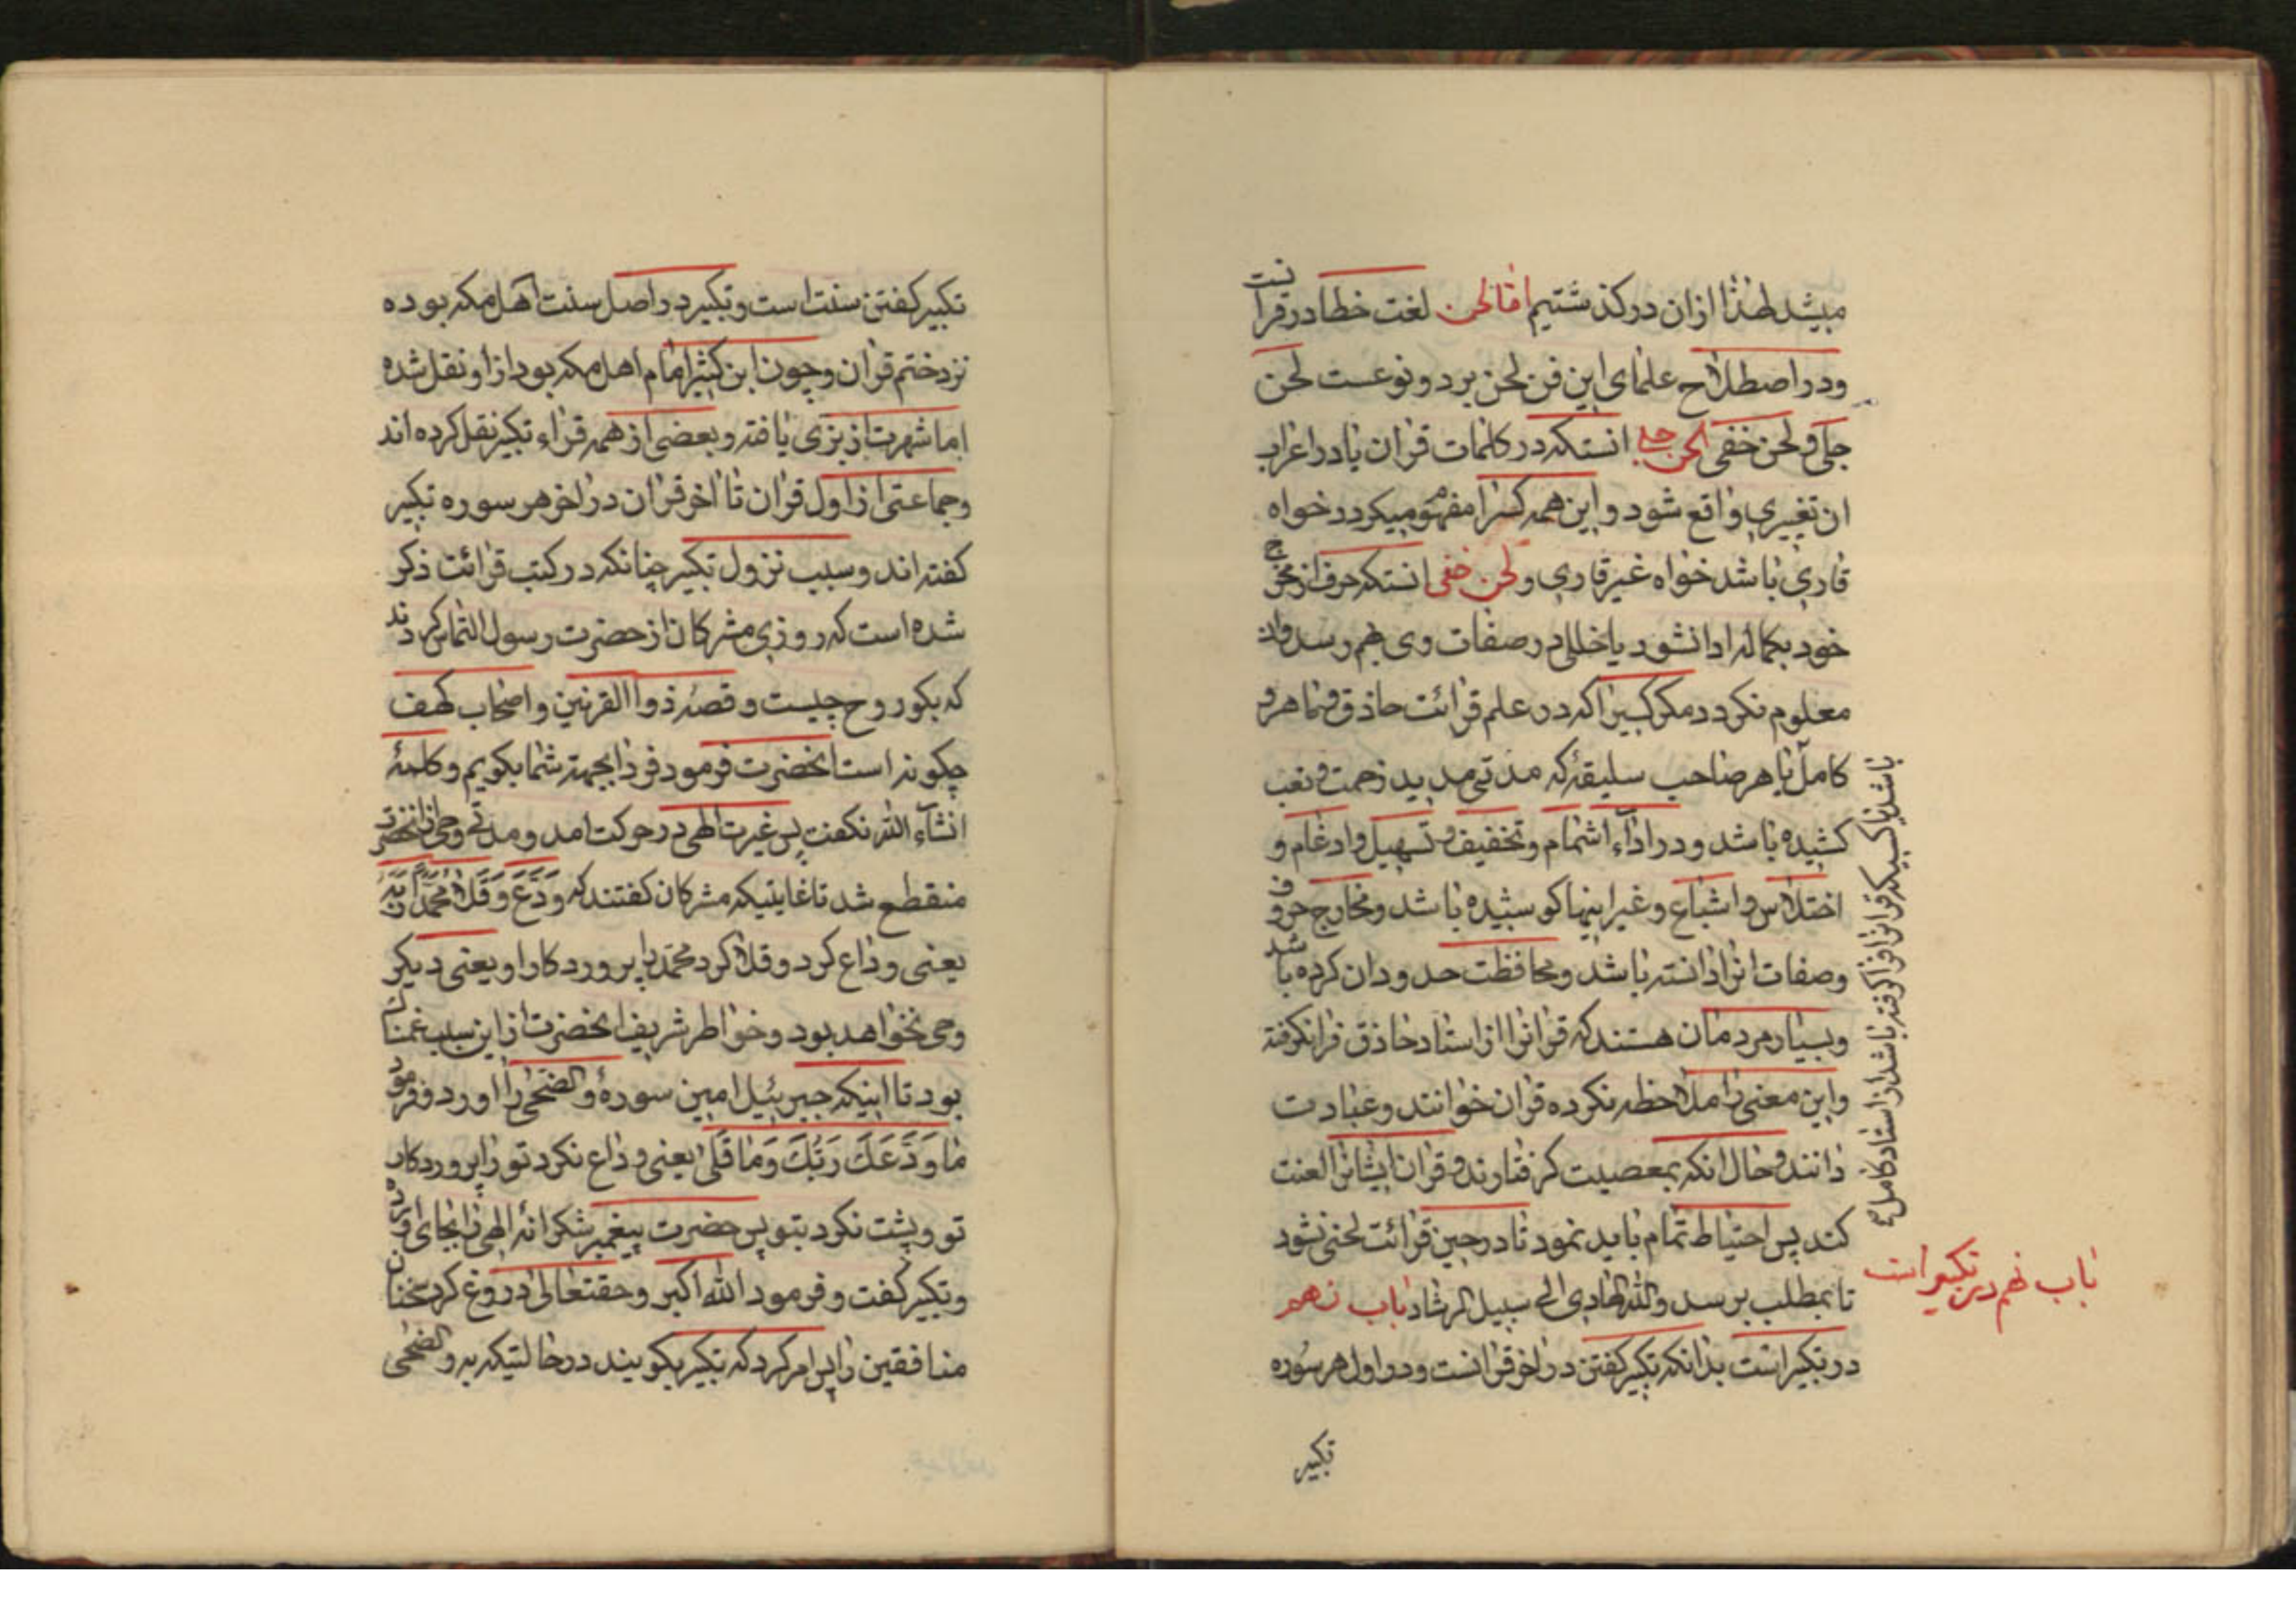 میشد لهذا ازان درکذشتیم امّا لحن لغت خطا در قرا نست
و در اصطلاح علمای این فن لحن بر دو نوعست لحن
جلی و لحن خفی لحن جلی انستکه در کلمات قران یا در اعراب
ان تغییری واقع شود و این همه کسرا مفهوم میکردد خواه
قاری باشد خواه غیر قاری و لحن خفی انستکه حرف از مخرج
خود بکماله ادا نشود یا خللی در صفات وی بهم رسد و ان
معلوم نکردد مکر کسیرا که در علم قرائت حاذق و ماهر و
کامل یا هر صاحب سلیقهٔ که مدتی مدید زحمت و تعب
کشیده باشد و در اداء اشمام و تخفیف و تسهیل و ادغام و
اختلاس و اشباع و غیر اینها کوشیده باشد و مخارج حروف
و صفات انرا دانسته باشد و محافظت حدود ان کرده باشد
و بسیار مردمان هستند که قرانرا از استاد حاذق فرانکرفته
و این معنی را ملاحظه نکرده قران خوانند و عبادت
دانند و حال انکه بمعصیت کرفتارند و قران ایشانرا لعنت
کند پس احتیاط تمام باید نمود تا در حین قرائت لحنی نشود
تا بمطلب برسد والله الهادی الی سبیل الرشاد باب نهم
در تکبیر است بدانکه تکبیر کفتن در اخر قرانست و در اول هر سوره
تکبیر
باشد یا کسیکه قرانرا فراکرفته باشد از استاد کامل
باب نهم در تکبیر است
تکبیر کفتن سنت است و تکبیر در اصل سنت اهل مکه بوده
نزد ختم قران و چون ابن کثیر امام اهل مکه بود از او نقل شده
اما شهرت از بزی یافته و بعضی از همه قراء تکبیر نقل کرده اند
و جماعتی از اول قران تا اخر قران در اخر هر سوره تکبیر
کفته اند و سبب نزول تکبیر چنانکه در کتب قرائت ذکر
شده است که روزی مشرکان از حضرت رسول التماس کردند
که بکو روح چیست و قصهٔ ذوا القرنین و اصحاب کهف
چکونه است انحضرت فرمود فردا بجهته شما بکویم و کلمهٔ
انشآء الله نکفت پس غیرت الهی در حرکت امد و مدتی وحی از انحضرت
منقطع شد تا غایتیکه مشرکان کفتند که وَدَّعَ وَ قَلا محمّدًا ربّه
یعنی وداع کرد و قلا کرد محمّد را پروردکار او یعنی دیکر
وحی نخواهد بود و خواطر شریف انحضرت از این سبب غمناک
بود تا اینکه جبرئیل امین سورهٔ والضّحی را اورد و فرمود
مَا وَدَّعَكَ رَبُّكَ وَمَا قَلَی یعنی وداع نکرد تو را پروردکار
تو و پشت نکرد بتو پس حضرت پیغمبر شکرانه الهی را بجای اورده
و تکبیر کفت و فرمود الله اکبر و حقتعالی دروغ کرد سخنان
منافقین را پس امر کرد که تکبیر بکویند در حالتیکه به والضّحی